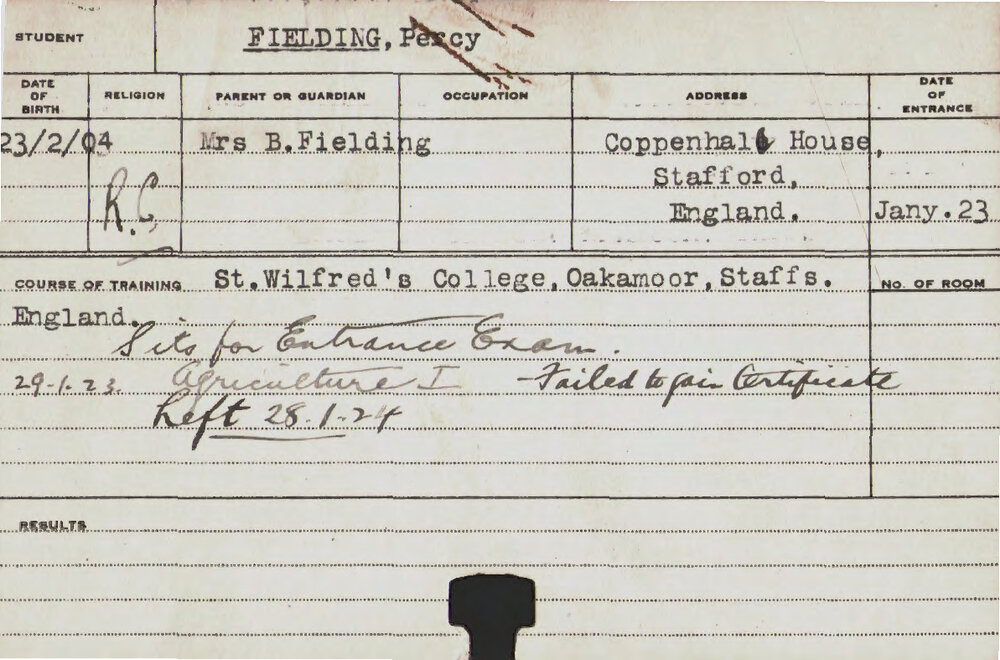 STUDENT FIELDING, Percy
DATE OF BIRTH RELIGION PARENT OR GUARDIAN OCCUPATION ADDRESS DATE OF ENTRANCE
23/2/04 Mrs B.Fielding Coppenhall House,
Stafford,
R.C. England. Jany.23
COURSE OF TRAINING St.Wilfred's College, Oakamoor, Staffs. NO. OF ROOM
England.
Sits for Entrance Exam.
29-1-23. Agriculture I Failed to gain Certificate
Left 28-1-24
RESULTS